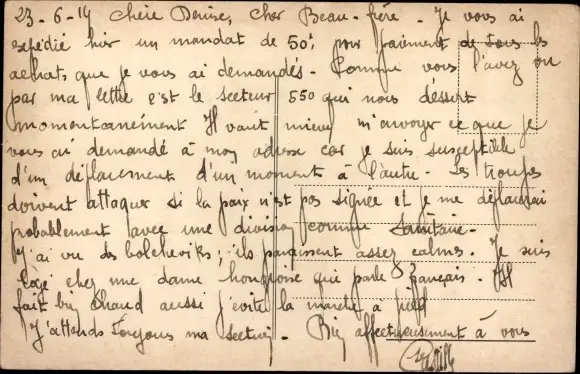 23-6-19 Chère Denise, cher Beau-frère - Je vous ai
expédié hier un mandat de 50f pour paiement de tous les
achats que je vous ai demandés - Comme vous l'avez vu
par ma lettre c'est le secteur 550 qui nous dessert
momentanément Il vaut mieux m'envoyer ce que je
vous ai demandé à mon adresse car je suis susceptible
d'un déplacement d'un moment à l'autre - Les troupes
doivent attaquer si la paix n'est pas signée et je me déplacerai
probablement avec une division comme sanitaire -
J'ai vu des bolcheviks; ils paraissent assez calmes. Je suis
logé chez une dame hongroise qui parle français - Il
fait bien chaud aussi j'évite la marche à pied
J'attends toujours ma secteur - Bien affectueusement à vous